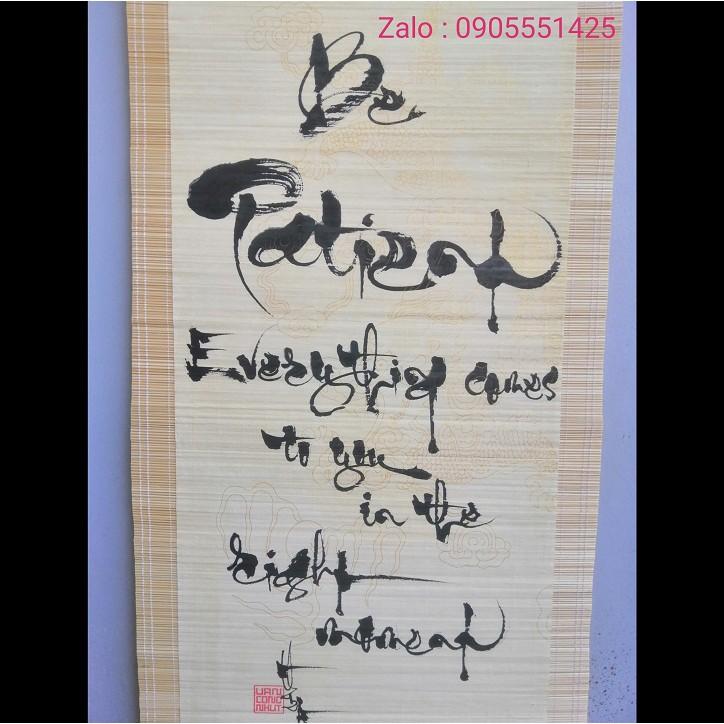 Zalo : 0905551425
Be
Patient
Everything comes
to you
in the
right
moment
VAN
CONG
NHUT